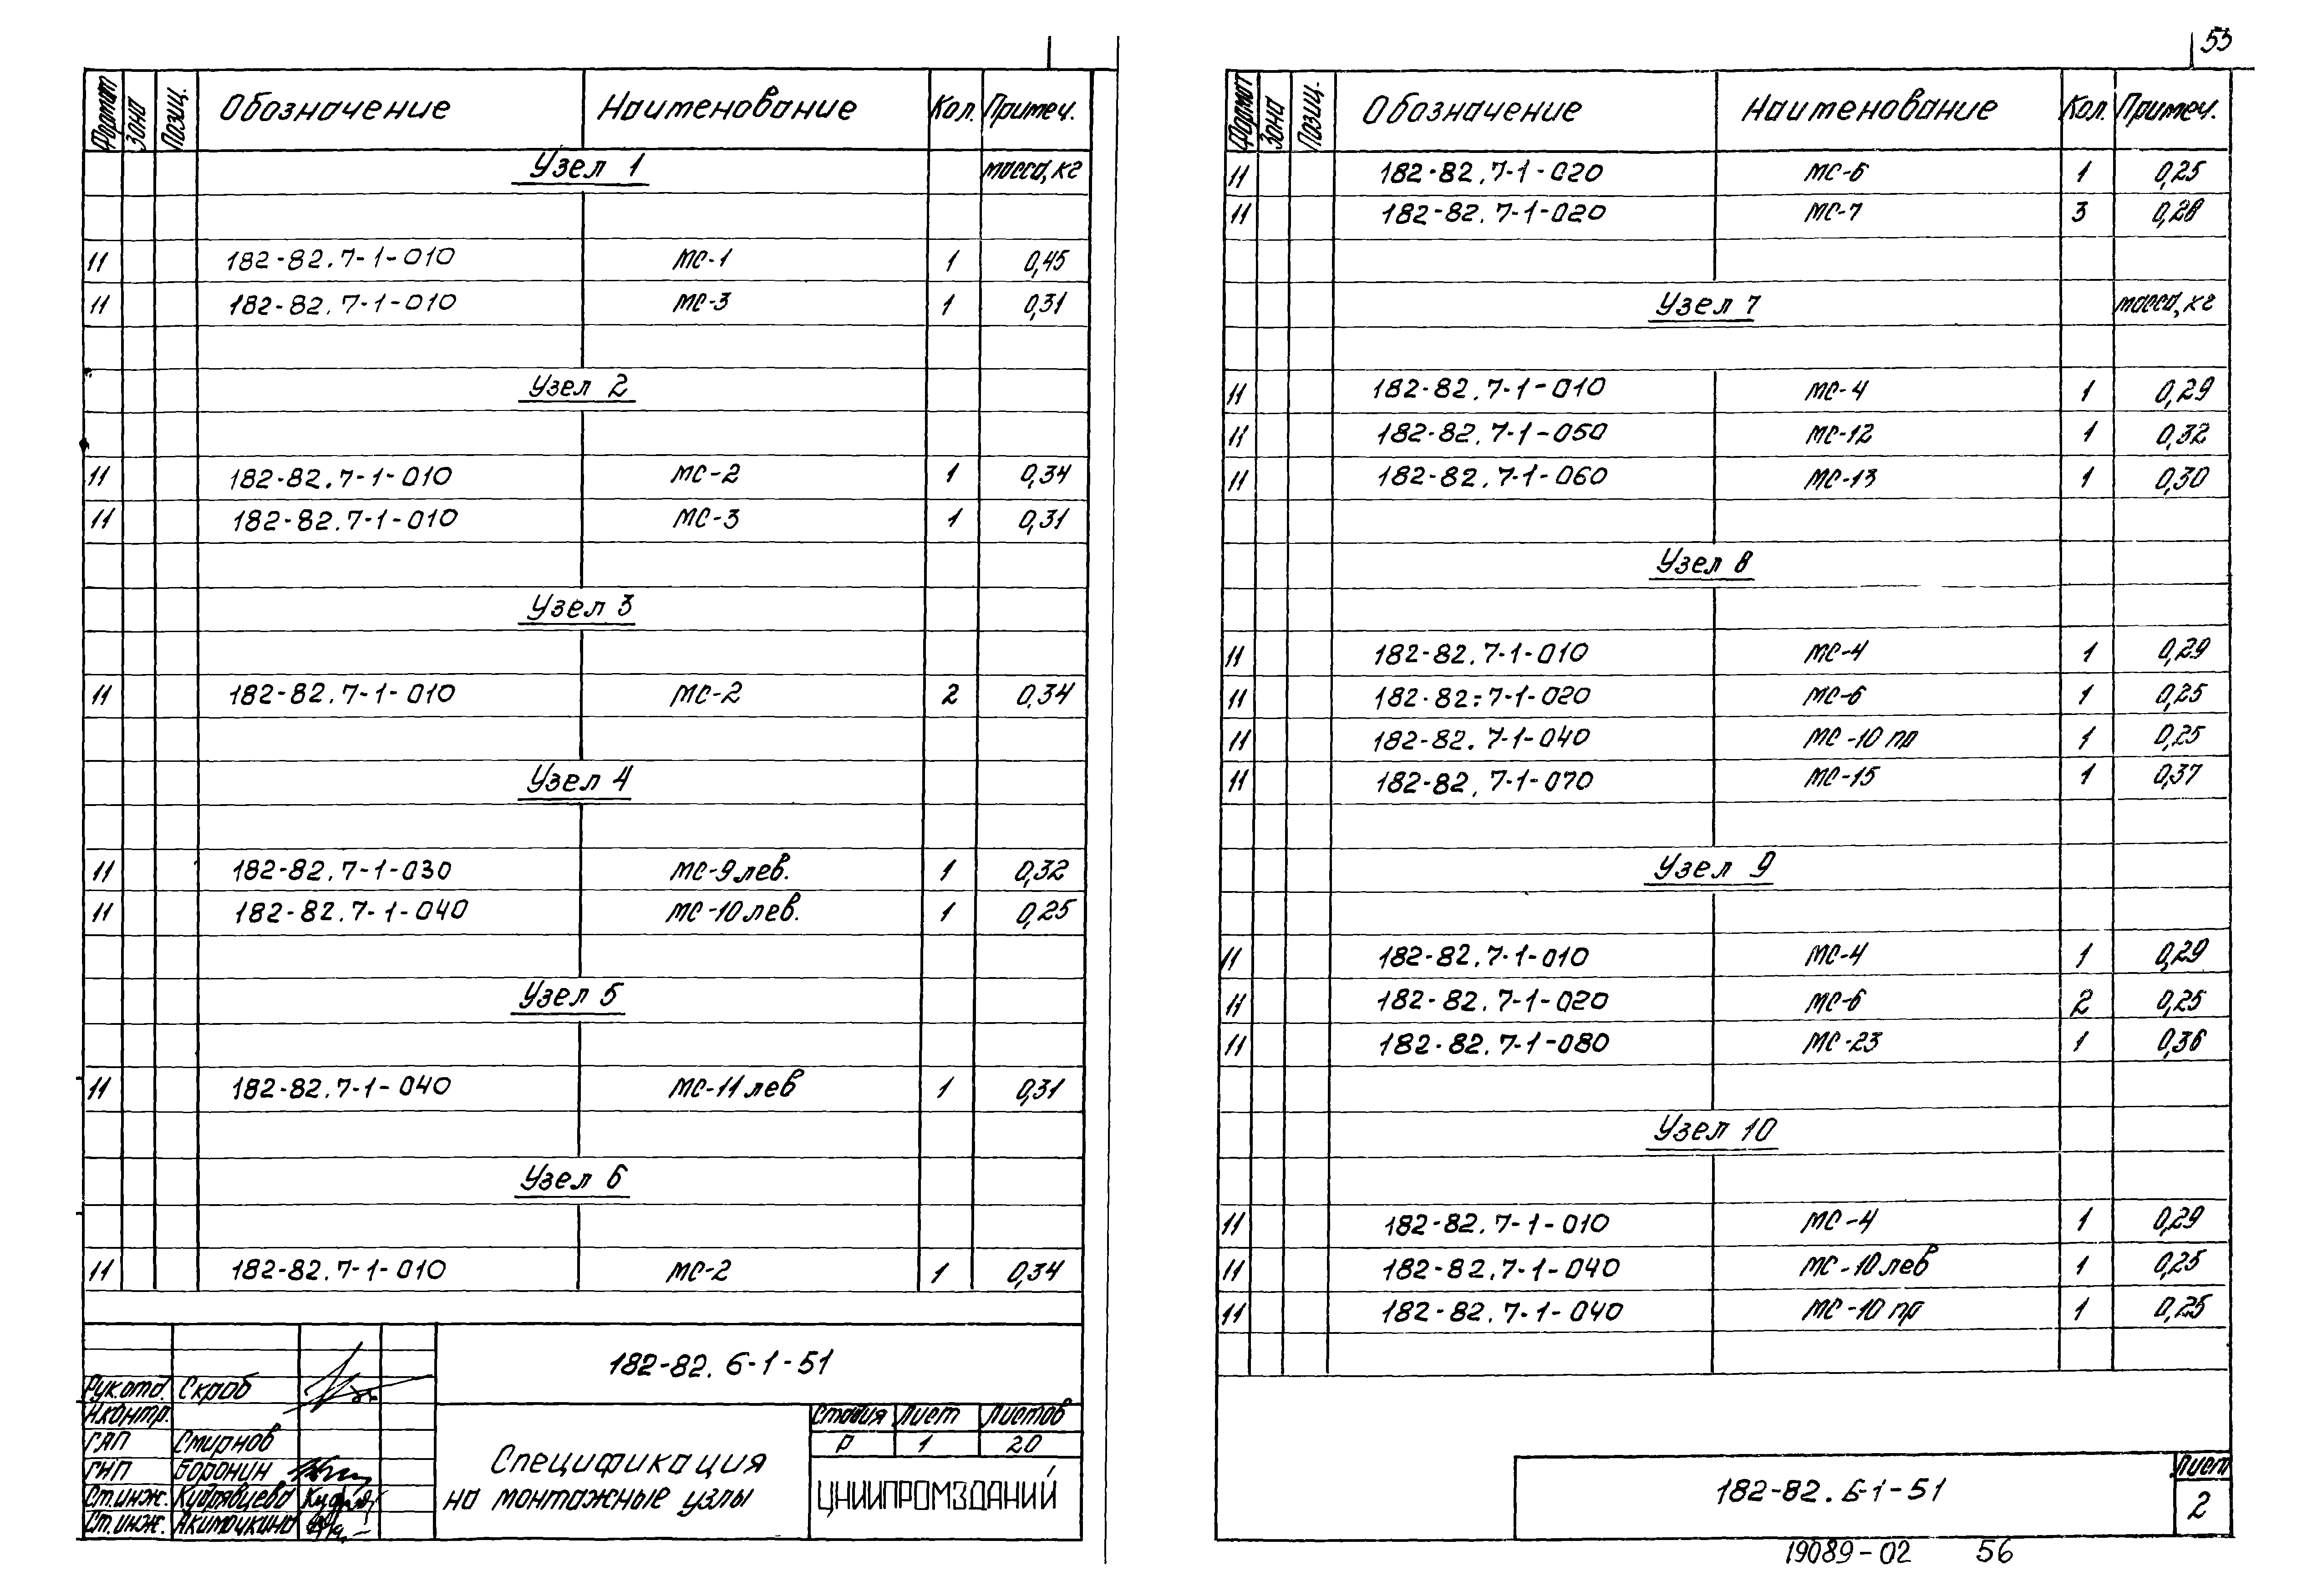 Формат Зона Позиц. Обозначение Наименование Кол. Примеч.
Узел 1 масса, кг
11 182-82.7-1-010 МС-1 1 0,45
11 182-82.7-1-010 МС-3 1 0,31
Узел 2
11 182-82.7-1-010 МС-2 1 0,34
11 182-82.7-1-010 МС-3 1 0,31
Узел 3
11 182-82.7-1-010 МС-2 2 0,34
Узел 4
11 182-82.7-1-030 МС-9 лев. 1 0,32
11 182-82.7-1-040 МС-10 лев. 1 0,25
Узел 5
11 182-82.7-1-040 МС-11 лев 1 0,31
Узел 6
11 182-82.7-1-010 МС-2 1 0,34
182-82. 6-1-51
Рук.отд. Скроб
Н.контр.
ГАП Смирнов
ГИП Боронин
Ст.инж. Кудрявцева
Ст.инж. Акимочкина
Спецификация
на монтажные узлы
Стадия Лист Листов
Р 1 20
ЦНИИПРОМЗДАНИЙ
53
Формат Зона Позиц. Обозначение Наименование Кол. Примеч.
11 182-82.7-1-020 МС-6 1 0,25
11 182-82.7-1-020 МС-7 3 0,28
Узел 7 масса, кг
11 182-82.7-1-010 МС-4 1 0,29
11 182-82.7-1-050 МС-12 1 0,32
11 182-82.7-1-060 МС-13 1 0,30
Узел 8
11 182-82.7-1-010 МС-4 1 0,29
11 182-82.7-1-020 МС-6 1 0,25
11 182-82.7-1-040 МС-10 пр 1 0,25
11 182-82.7-1-070 МС-15 1 0,37
Узел 9
11 182-82.7-1-010 МС-4 1 0,29
11 182-82.7-1-020 МС-6 2 0,25
11 182-82.7-1-080 МС-23 1 0,36
Узел 10
11 182-82.7-1-010 МС-4 1 0,29
11 182-82.7-1-040 МС-10 лев 1 0,25
11 182-82.7-1-040 МС-10 пр 1 0,25
182-82.6-1-51
Лист
2
19089-02 56